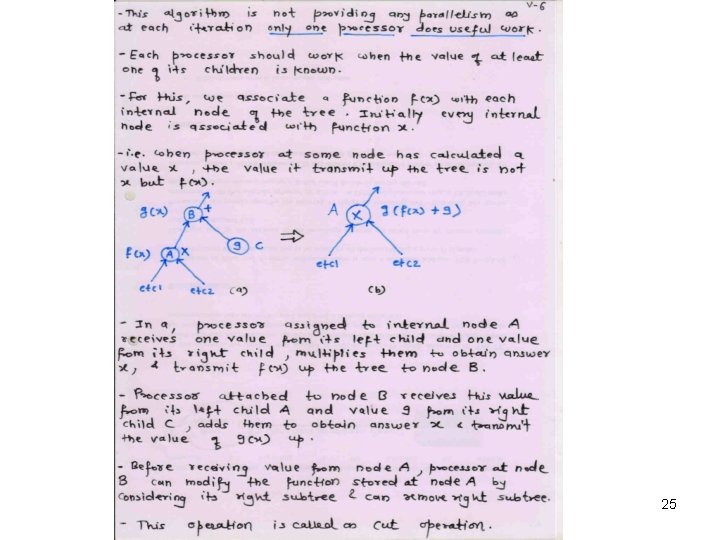 V-6
- This algorithm is not providing any parallelism as
at each iteration only one processor does useful work.
- Each processor should work when the value of at least
one of its children is known.
- For this, we associate a function f(x) with each
internal node of the tree. Initially every internal
node is associated with function x.
- i.e. when processor at some node has calculated a
value x, the value it transmit up the tree is not
x but f(x).
g(x) B +
A X g(f(x)+9)
f(x) A X
9 C
etc1 etc2
etc1 etc2 (a)
(b)
- In a, processor assigned to internal node A
receives one value from its left child and one value
from its right child, multiplies them to obtain answer
x, & transmit f(x) up the tree to node B.
- Processor attached to node B receives this value
from its left child A and value 9 from its right
child C, adds them to obtain answer x & transmit
the value of g(x) up.
- Before receiving value from node A, processor at node
B can modify the function stored at node A by
considering its right subtree & can remove right subtree.
- This operation is called as cut operation.
25